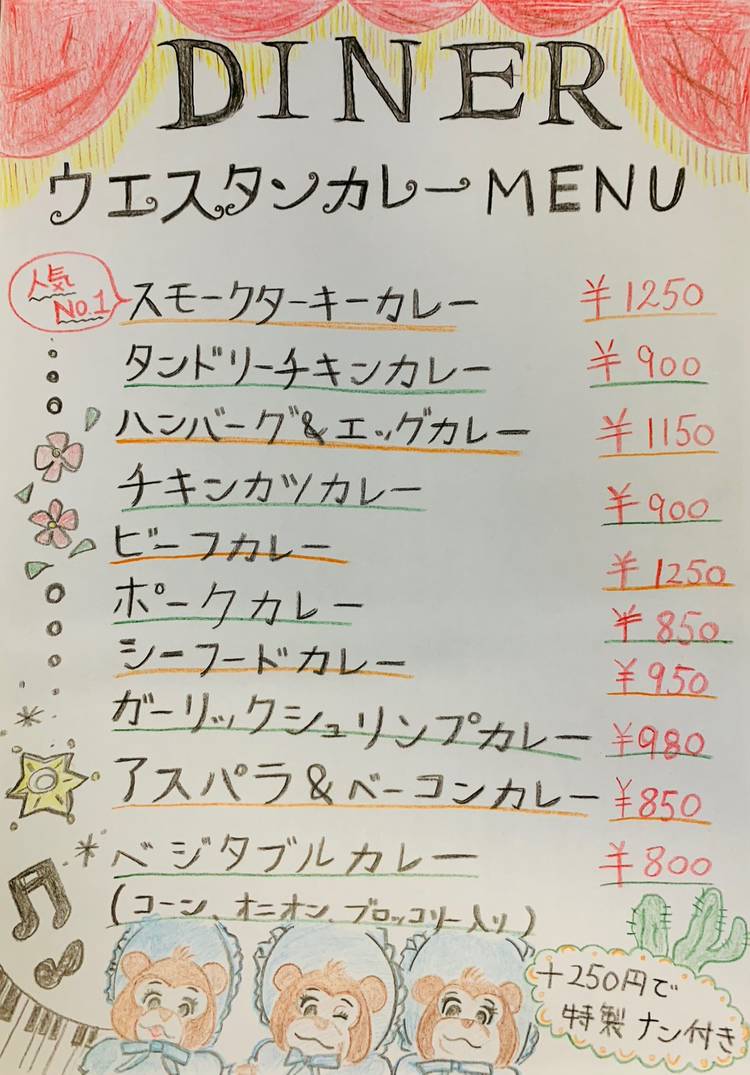 DINER
ウエスタンカレーMENU
人気
No.1
スモークターキーカレー ¥1250
タンドリーチキンカレー ¥900
ハンバーグ&エッグカレー ¥1150
チキンカツカレー ¥900
ビーフカレー ¥1250
ポークカレー ¥850
シーフードカレー ¥950
ガーリックシュリンプカレー ¥980
アスパラ&ベーコンカレー ¥850
ベジタブルカレー ¥800
(コーン、オニオン、ブロッコリー入り)
+250円で
特製ナン付き